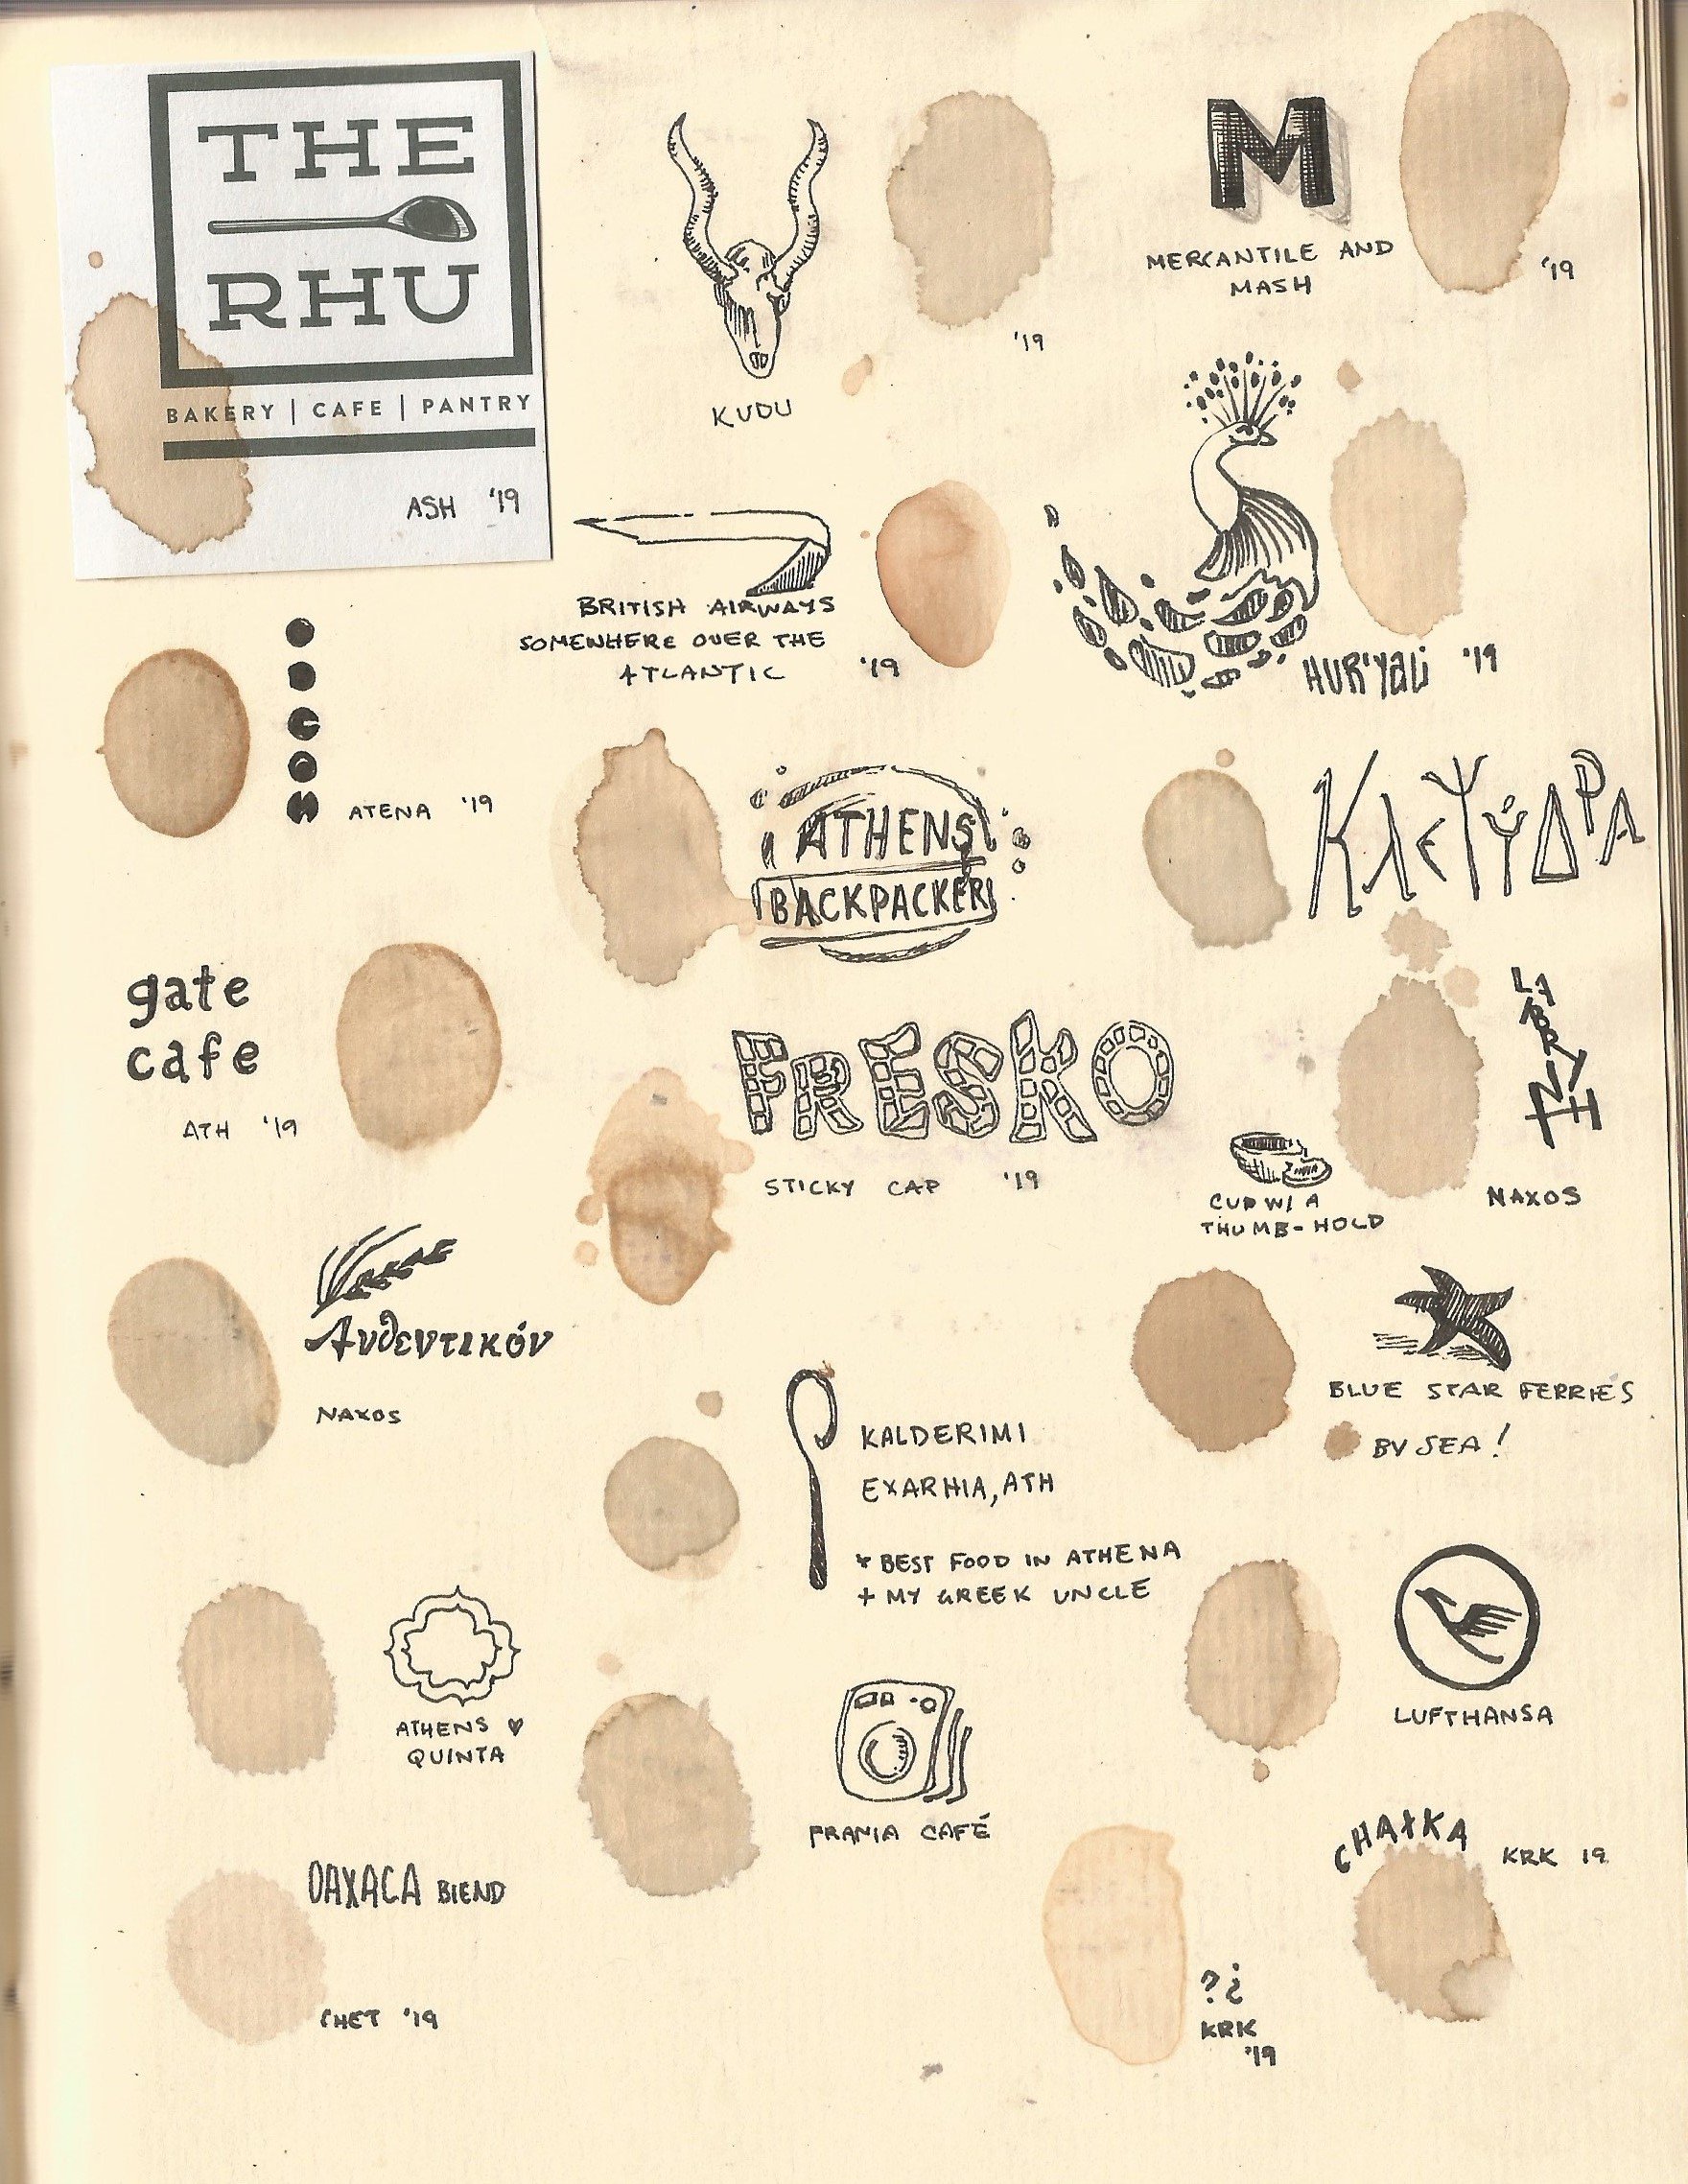 THE
RHU
BAKERY | CAFE | PANTRY
ASH '19
KUDU
'19
M
MERCANTILE AND
MASH
'19
BRITISH AIRWAYS
SOMEWHERE OVER THE
ATLANTIC '19
HUR'YALI '19
ATENA '19
ATHENS
BACKPACKERS
ΚλεΨύΔΡΑ
gate
cafe
ATH '19
FRESKO
STICKY CAP '19
CUP W/ A
THUMB-HOLD
NAXOS
Αυθεντικόν
NAXOS
BLUE STAR FERRIES
BY SEA!
KALDERIMI
EXARHIA, ATH
* BEST FOOD IN ATHENA
+ MY GREEK UNCLE
ATHENS ♥
QUINTA
LUFTHANSA
FRANIA CAFÉ
OAXACA BLEND
CHET '19
?¿
KRK
'19
KRK 19